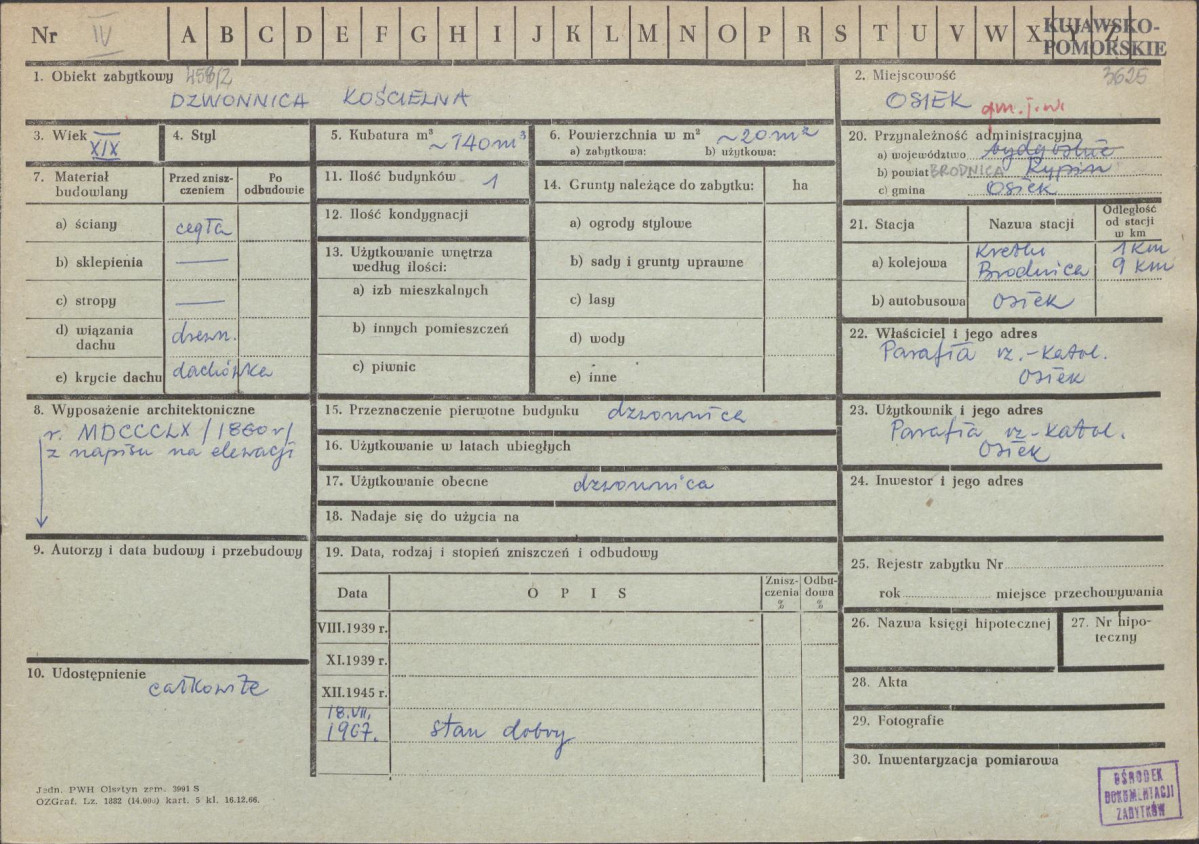 Nr IV A B C D E F G H I J K L M N O P R S T U V W X Y Z KUJAWSKO-
POMORSKIE
1. Obiekt zabytkowy 458/2
DZWONNICA KOŚCIELNA
2. Miejscowość 3625
OSIEK gm. j. w.
3. Wiek XIX
4. Styl
5. Kubatura m³ ~140m³
6. Powierzchnia w m² ~20m²
a) zabytkowa: b) użytkowa:
7. Materiał
budowlany
Przed znisz-
czeniem
Po
odbudowie
a) ściany cegła
b) sklepienia —
c) stropy —
d) wiązania
dachu drewn.
e) krycie dachu dachówka
8. Wyposażenie architektoniczne
r. MDCCCLX /1860 r/
z napisu na elewacji
9. Autorzy i data budowy i przebudowy
10. Udostępnienie
całkowite
11. Ilość budynków 1
12. Ilość kondygnacji
13. Użytkowanie wnętrza
według ilości:
a) izb mieszkalnych
b) innych pomieszczeń
c) piwnic
14. Grunty należące do zabytku: ha
a) ogrody stylowe
b) sady i grunty uprawne
c) lasy
d) wody
e) inne
15. Przeznaczenie pierwotne budynku dzwonnica
16. Użytkowanie w latach ubiegłych
17. Użytkowanie obecne dzwonnica
18. Nadaje się do użycia na
19. Data, rodzaj i stopień zniszczeń i odbudowy
Data O P I S
Znisz-
czenia
%
Odbu-
dowa
%
VIII.1939 r.
XI.1939 r.
XII.1945 r.
18.VII.
1967. stan dobry
20. Przynależność administracyjna
a) województwo bydgoskie
b) powiat BRODNICA Rypin
c) gmina Osiek
21. Stacja Nazwa stacji
Odległość
od stacji
w km
a) kolejowa 1 km
Brodnica 9 km
b) autobusowa Osiek
22. Właściciel i jego adres
Parafia rz.-katol.
Osiek
23. Użytkownik i jego adres
Parafia rz-katol.
Osiek
24. Inwestor i jego adres
25. Rejestr zabytku Nr
rok miejsce przechowywania
26. Nazwa księgi hipotecznej
27. Nr hipo-
teczny
28. Akta
29. Fotografie
30. Inwentaryzacja pomiarowa
Jedn. PWH Olsztyn zam. 3991 S
OZGraf. Lz. 1882 (14.000) kart. 5 kl. 16.12.66.
OŚRODEK
DOKUMENTACJI
ZABYTKÓW